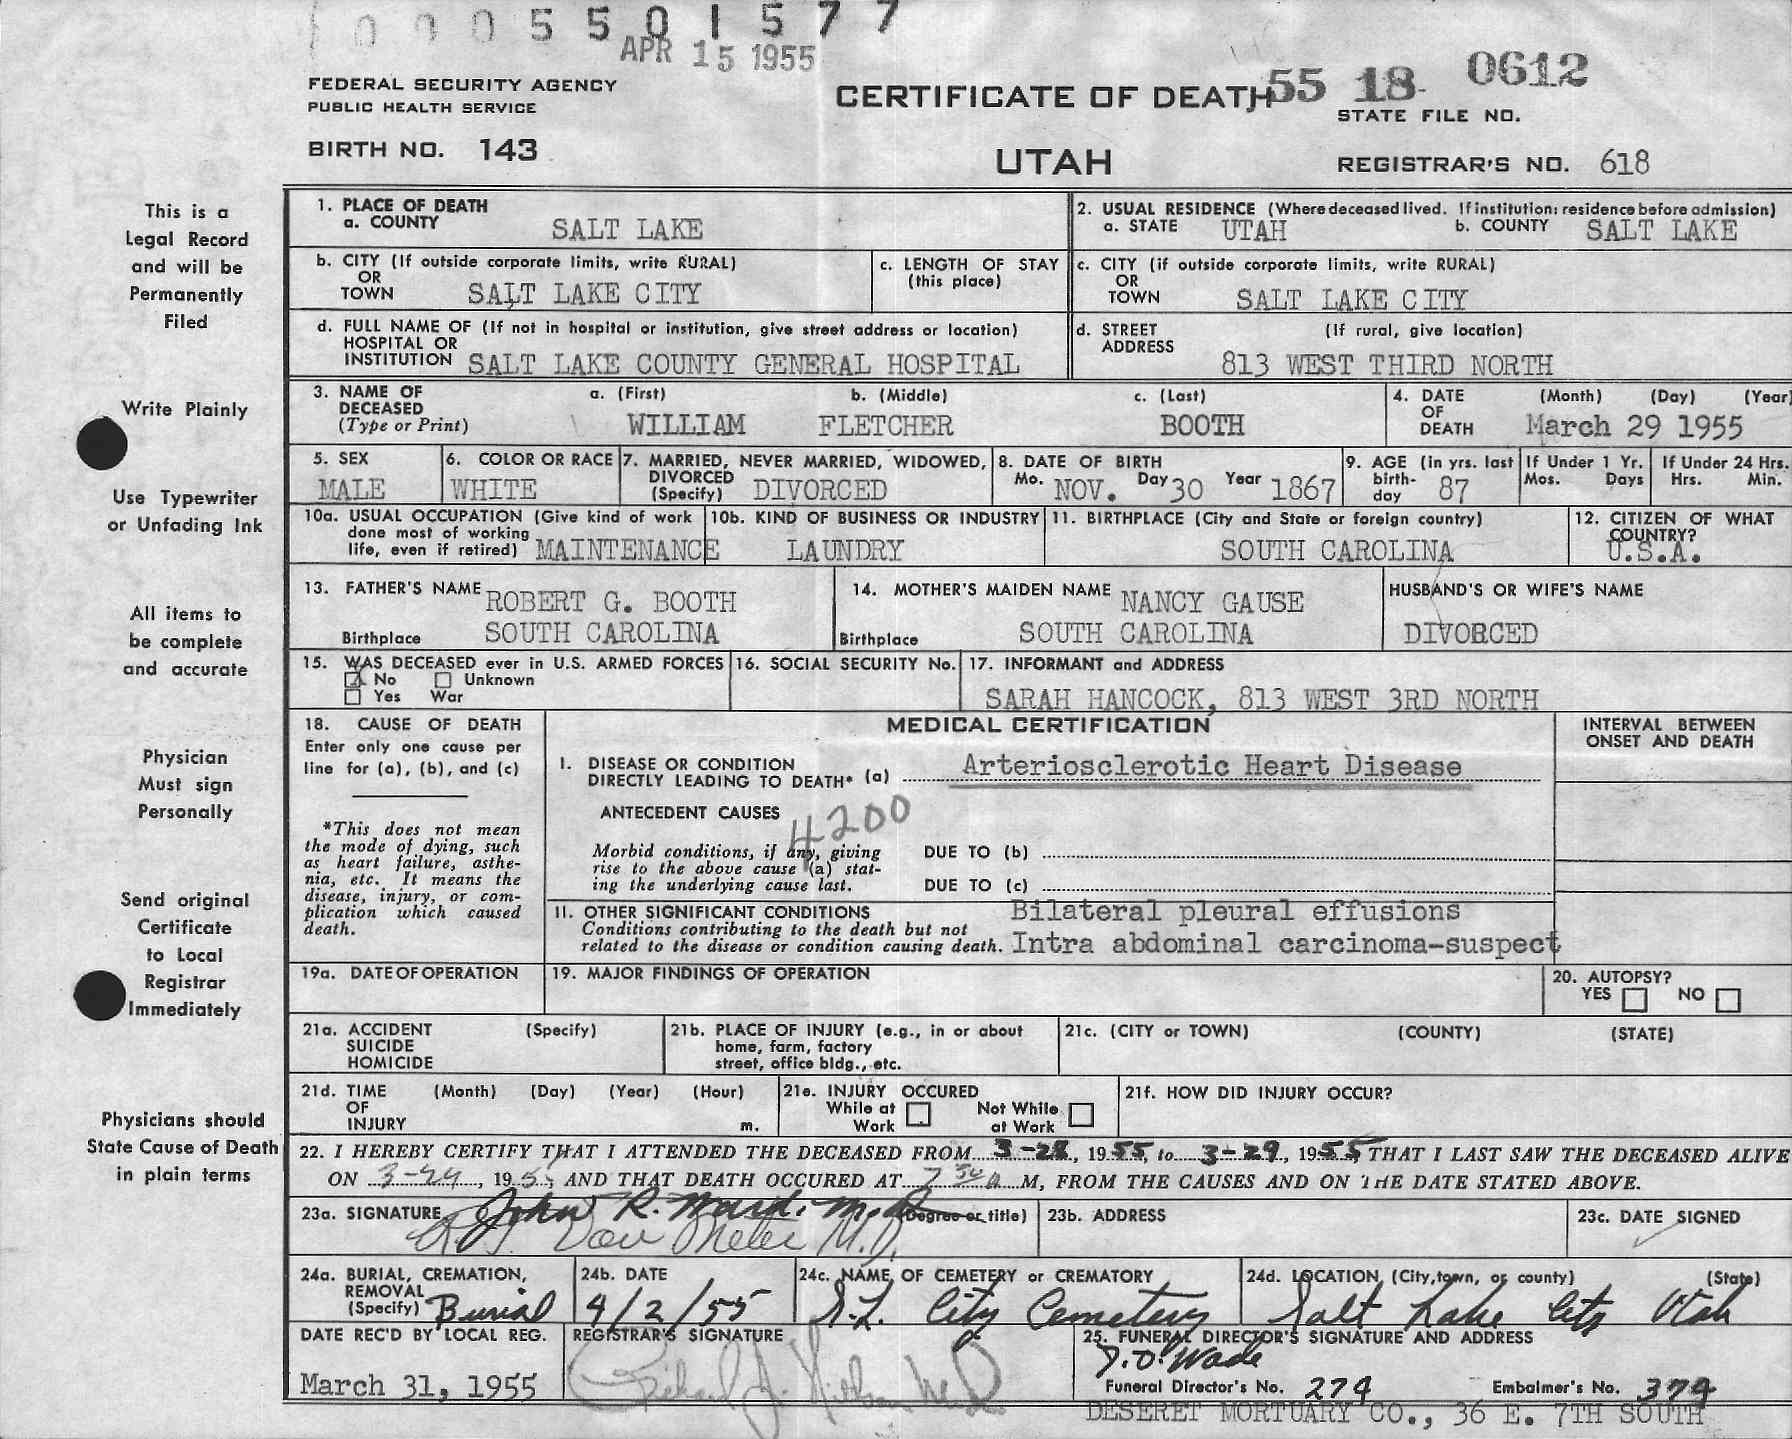 0 0 0 5 5 0 1 5 7 7
APR 15 1955
FEDERAL SECURITY AGENCY
PUBLIC HEALTH SERVICE
CERTIFICATE OF DEATH 55 18 0612
STATE FILE NO.
BIRTH NO. 143
UTAH
REGISTRAR'S NO. 618
This is a
Legal Record
and will be
Permanently
Filed
Write Plainly
Use Typewriter
or Unfading Ink
All items to
be complete
and accurate
Physician
Must sign
Personally
Send original
Certificate
to Local
Registrar
Immediately
Physicians should
State Cause of Death
in plain terms
1. PLACE OF DEATH
a. COUNTY SALT LAKE
2. USUAL RESIDENCE (Where deceased lived. If institution: residence before admission)
a. STATE UTAH b. COUNTY SALT LAKE
b. CITY (If outside corporate limits, write RURAL)
OR
TOWN SALT LAKE CITY
c. LENGTH OF STAY
(this place)
c. CITY (if outside corporate limits, write RURAL)
OR
TOWN SALT LAKE CITY
d. FULL NAME OF (If not in hospital or institution, give street address or location)
HOSPITAL OR
INSTITUTION SALT LAKE COUNTY GENERAL HOSPITAL
d. STREET (If rural, give location)
ADDRESS
813 WEST THIRD NORTH
3. NAME OF a. (First) b. (Middle) c. (Last)
DECEASED
(Type or Print) WILLIAM FLETCHER BOOTH
4. DATE (Month) (Day) (Year)
OF
DEATH March 29 1955
5. SEX
MALE
6. COLOR OR RACE
WHITE
7. MARRIED, NEVER MARRIED, WIDOWED,
DIVORCED
(Specify) DIVORCED
8. DATE OF BIRTH
Mo. NOV. Day 30 Year 1867
9. AGE (in yrs. last
birth-
day 87
If Under 1 Yr.
Mos. Days
If Under 24 Hrs.
Hrs. Min.
10a. USUAL OCCUPATION (Give kind of work
done most of working
life, even if retired) MAINTENANCE
10b. KIND OF BUSINESS OR INDUSTRY
LAUNDRY
11. BIRTHPLACE (City and State or foreign country)
SOUTH CAROLINA
12. CITIZEN OF WHAT
COUNTRY?
U.S.A.
13. FATHER'S NAME ROBERT G. BOOTH
Birthplace SOUTH CAROLINA
14. MOTHER'S MAIDEN NAME NANCY GAUSE
Birthplace SOUTH CAROLINA
HUSBAND'S OR WIFE'S NAME
DIVORCED
15. WAS DECEASED ever in U.S. ARMED FORCES
No Unknown
Yes War
16. SOCIAL SECURITY No.
17. INFORMANT and ADDRESS
SARAH HANCOCK, 813 WEST 3RD NORTH
18. CAUSE OF DEATH
Enter only one cause per
line for (a), (b), and (c)
*This does not mean
the mode of dying, such
as heart failure, asthe-
nia, etc. It means the
disease, injury, or com-
plication which caused
death.
MEDICAL CERTIFICATION
INTERVAL BETWEEN
ONSET AND DEATH
I. DISEASE OR CONDITION
DIRECTLY LEADING TO DEATH* (a) Arteriosclerotic Heart Disease
ANTECEDENT CAUSES
4200
Morbid conditions, if any, giving
rise to the above cause (a) stat-
ing the underlying cause last.
DUE TO (b)
DUE TO (c)
II. OTHER SIGNIFICANT CONDITIONS
Conditions contributing to the death but not
related to the disease or condition causing death.
Bilateral pleural effusions
Intra abdominal carcinoma-suspect
19a. DATE OF OPERATION
19. MAJOR FINDINGS OF OPERATION
20. AUTOPSY?
YES NO
21a. ACCIDENT (Specify)
SUICIDE
HOMICIDE
21b. PLACE OF INJURY (e.g., in or about
home, farm, factory
street, office bldg., etc.
21c. (CITY or TOWN) (COUNTY) (STATE)
21d. TIME (Month) (Day) (Year) (Hour)
OF
INJURY m.
21e. INJURY OCCURED
While at Work Not While at Work
21f. HOW DID INJURY OCCUR?
22. I HEREBY CERTIFY THAT I ATTENDED THE DECEASED FROM 3-28, 1955, to 3-29, 1955, THAT I LAST SAW THE DECEASED ALIVE
ON 3-29, 1955, AND THAT DEATH OCCURED AT 7 30 A M, FROM THE CAUSES AND ON THE DATE STATED ABOVE.
23a. SIGNATURE John R. Ward. M.D. (Degree or title)
Van Meter M.D.
23b. ADDRESS
23c. DATE SIGNED
24a. BURIAL, CREMATION,
REMOVAL
(Specify) Burial
24b. DATE
4/2/55
24c. NAME OF CEMETERY or CREMATORY
S.L. City Cemetery
24d. LOCATION (City, town, or county) (State)
Salt Lake City Utah
DATE REC'D BY LOCAL REG.
March 31, 1955
REGISTRAR'S SIGNATURE
Richard J.
25. FUNERAL DIRECTOR'S SIGNATURE AND ADDRESS
D.O. Wade
Funeral Director's No. 274 Embalmer's No. 374
DESERET MORTUARY CO., 36 E. 7TH SOUTH